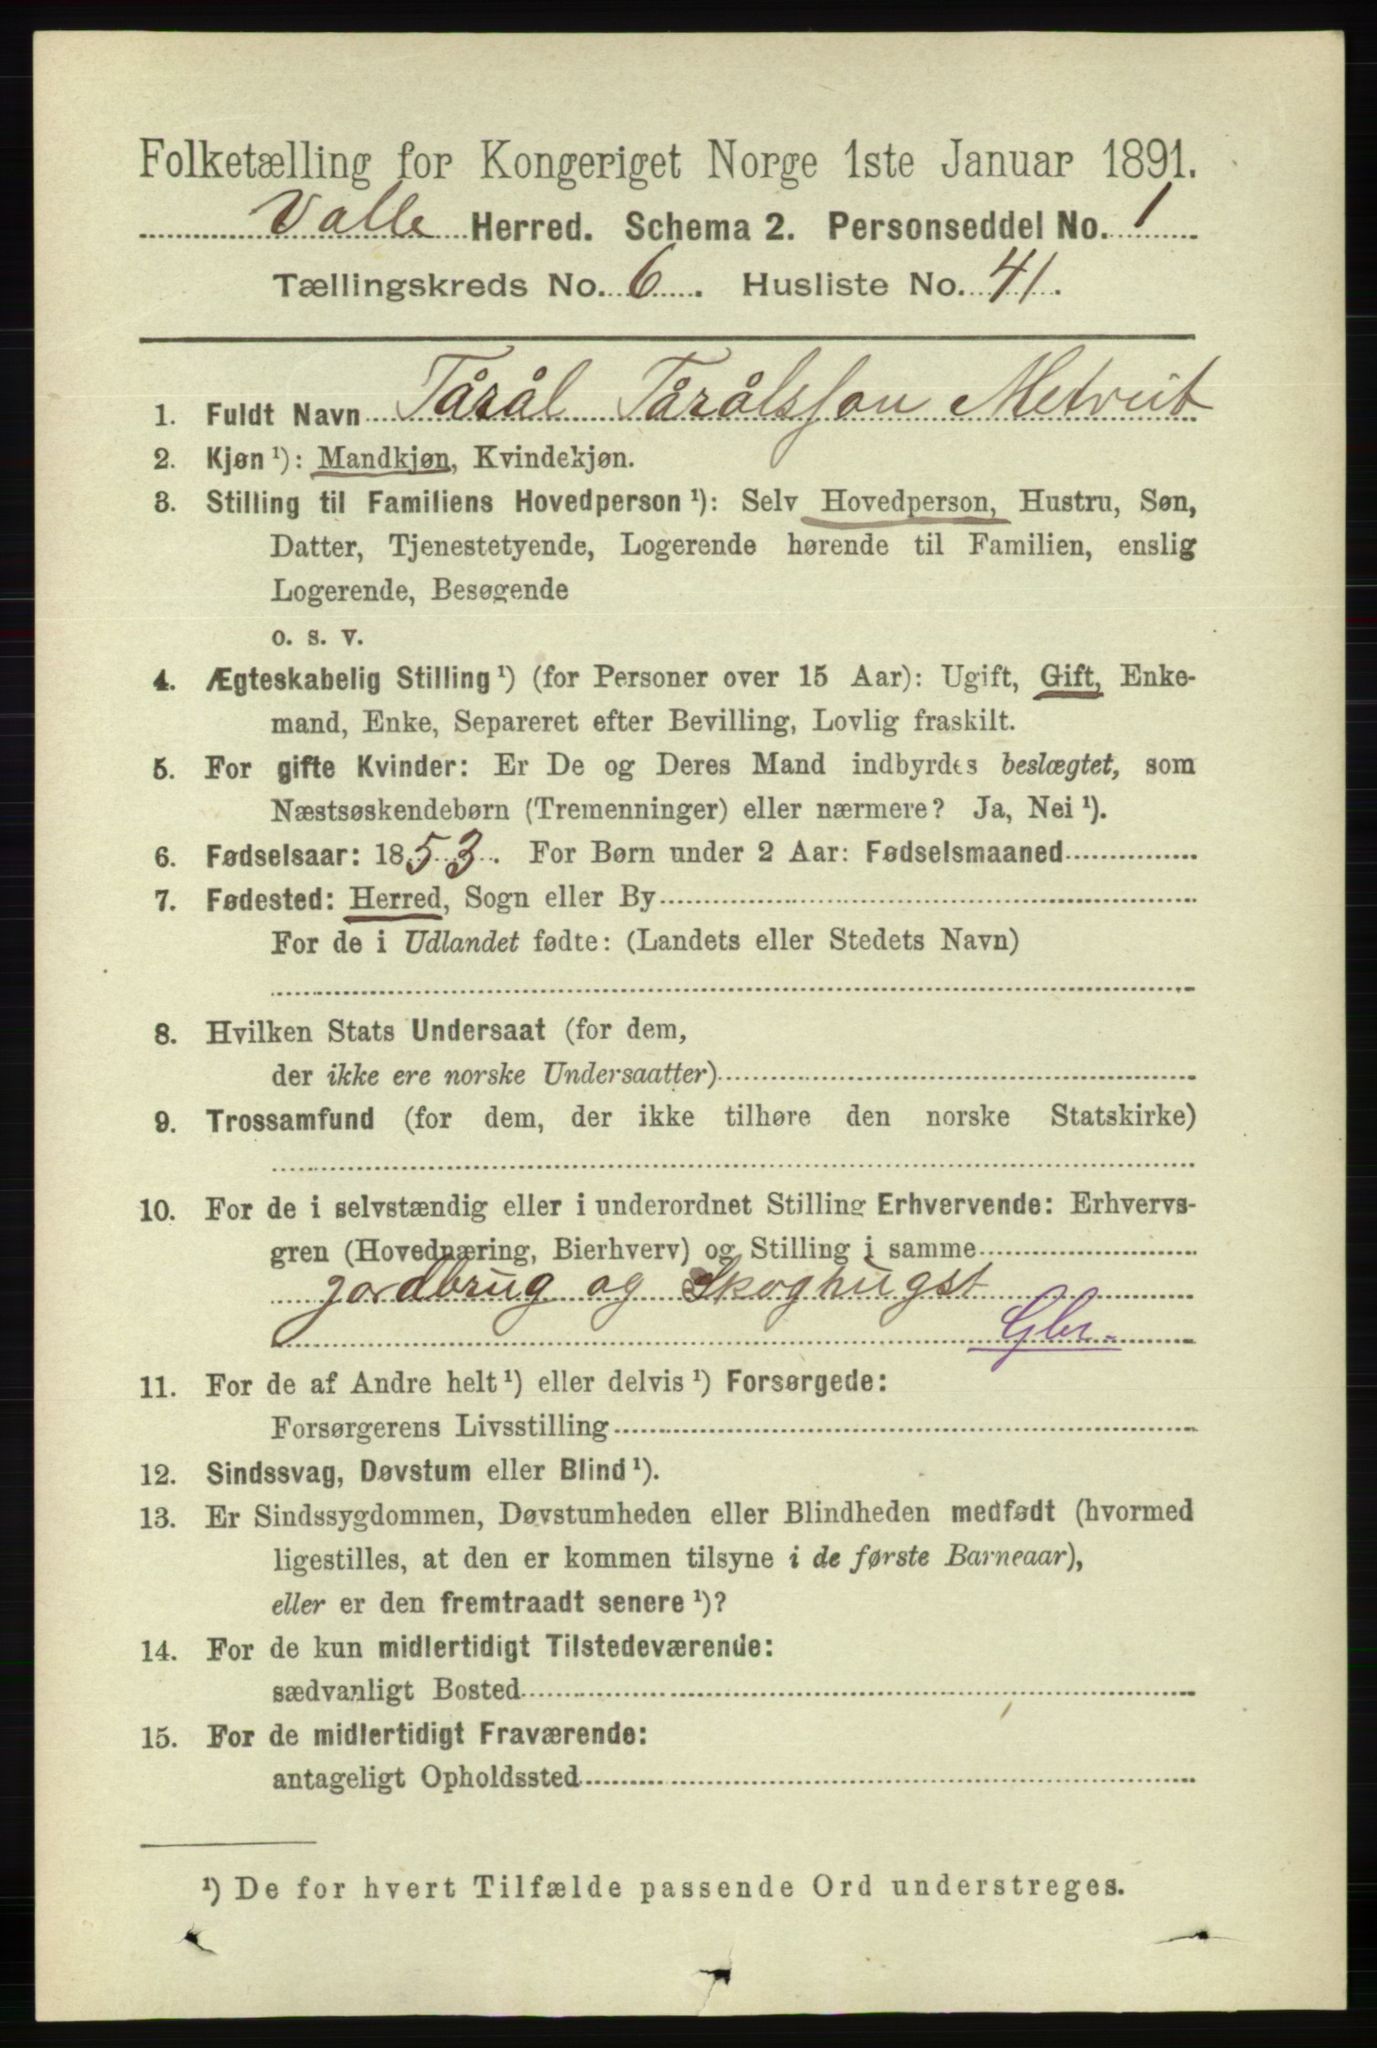 Folketælling for Kongeriget Norge 1ste Januar 1891.
Valle Herred. Schema 2. Personseddel No. 1
Tællingskreds No. 6. Husliste No. 41.
1. Fuldt Navn Tårål Tårålsson
2. Kjøn ¹): Mandkjøn, Kvindekjøn.
3. Stilling til Familiens Hovedperson ¹): Selv Hovedperson, Hustru, Søn,
Datter, Tjenestetyende, Logerende hørende til Familien, enslig
Logerende, Besøgende
o. s. v.
4. Ægteskabelig Stilling ¹) (for Personer over 15 Aar): Ugift, Gift, Enke-
mand, Enke, Separeret efter Bevilling, Lovlig fraskilt.
5. For gifte Kvinder: Er De og Deres Mand indbyrdes beslægtet, som
Næstsøskendebørn (Tremenninger) eller nærmere? Ja, Nei ¹).
6. Fødselsaar: 1853. For Børn under 2 Aar: Fødselsmaaned
7. Fødested: Herred, Sogn eller By
For de i Udlandet fødte: (Landets eller Stedets Navn)
8. Hvilken Stats Undersaat (for dem,
der ikke ere norske Undersaatter)
9. Trossamfund (for dem, der ikke tilhøre den norske Statskirke)
10. For de i selvstændig eller i underordnet Stilling Erhvervende: Erhvervs-
gren (Hovednæring, Bierhverv) og Stilling i samme
jordbrug og Skoghugst
Gbr.
11. For de af Andre helt ¹) eller delvis ¹) Forsørgede:
Forsørgerens Livsstilling
12. Sindssvag, Døvstum eller Blind ¹).
13. Er Sindssygdommen, Døvstumheden eller Blindheden medfødt (hvormed
ligestilles, at den er kommen tilsyne i de første Barneaar),
eller er den fremtraadt senere ¹)?
14. For de kun midlertidigt Tilstedeværende:
sædvanligt Bosted
15. For de midlertidigt Fraværende:
antageligt Opholdssted
¹) De for hvert Tilfælde passende Ord understreges.